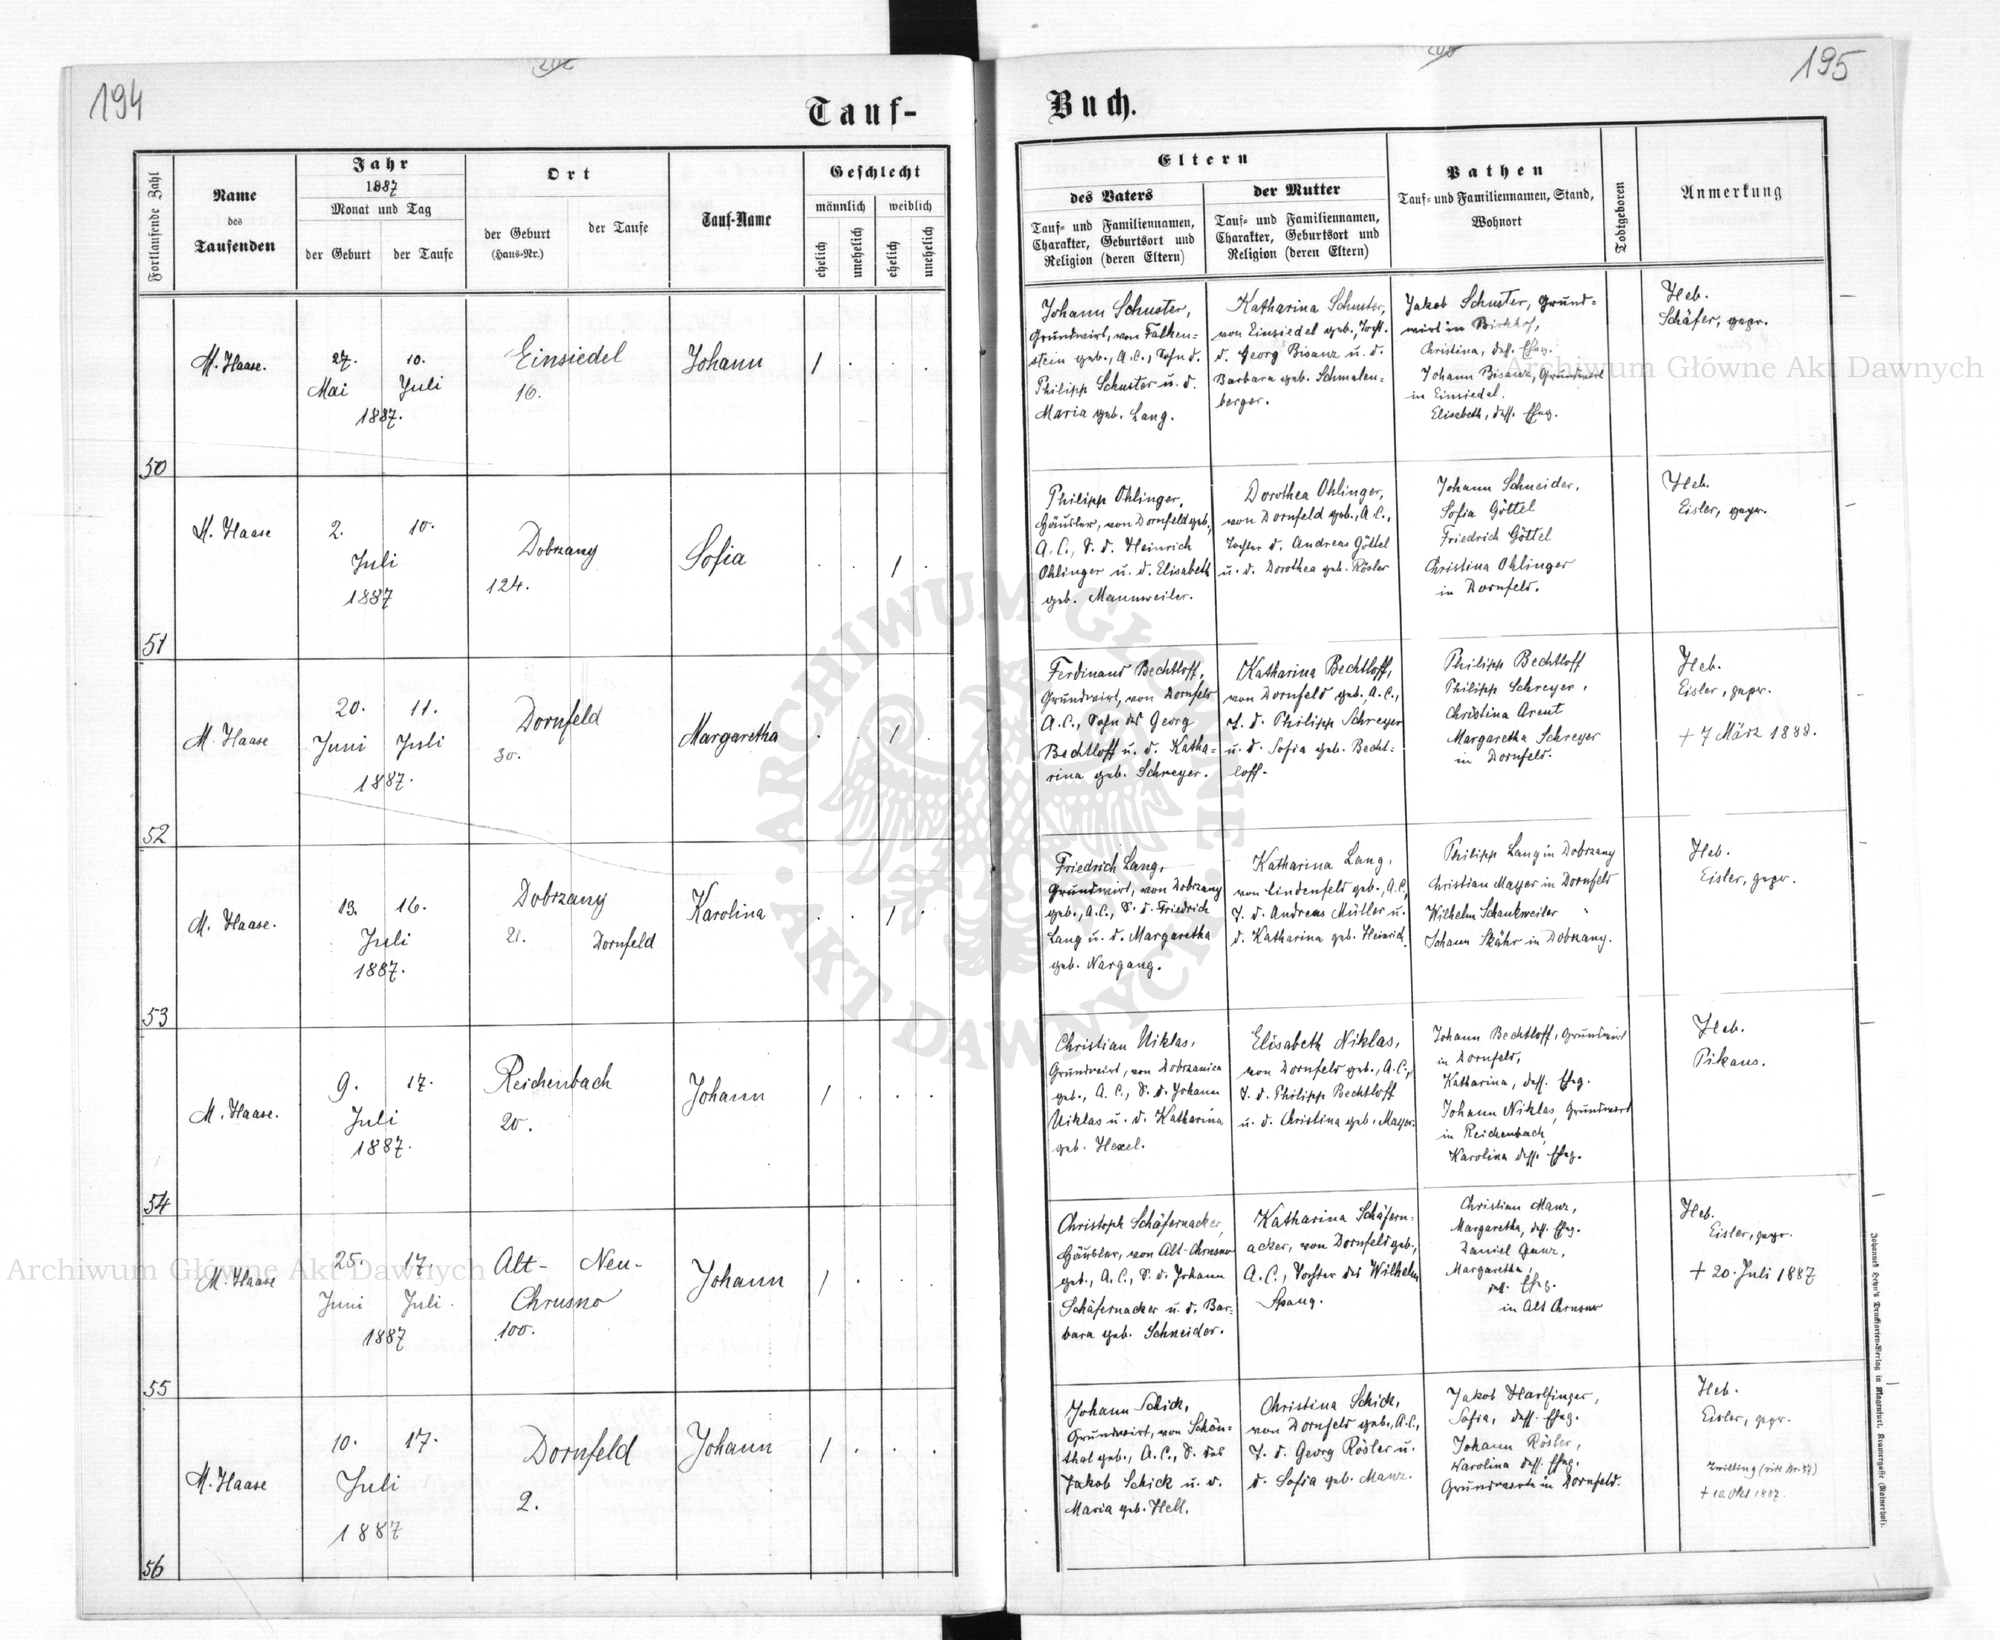 194
195
Tauf-
Buch.
Fortlaufende Zahl
Name
des
Taufenden
Jahr
1887
Monat und Tag
der Geburt
der Taufe
Ort
der Geburt
(Haus-Nr.)
der Taufe
Tauf-Name
Geschlecht
männlich
weiblich
ehelich
unehelich
ehelich
unehelich
Eltern
des Vaters
Tauf- und Familiennamen,
Charakter, Geburtsort und
Religion (deren Eltern)
der Mutter
Tauf- und Familiennamen,
Charakter, Geburtsort und
Religion (deren Eltern)
Pathen
Tauf- und Familiennamen, Stand,
Wohnort
Todtgeboren
Anmerkung
50
M. Haase.
27. 10.
Mai Juli
1887.
Einsiedel
16.
Johann
1 . . .
Johann Schuster,
Grundwirt, von Falken-
stein geb., A.C., Sohn d.
Philipp Schuster u. d.
Maria geb. Lang.
Katharina Schuster,
von Einsiedel geb., Tocht.
d. Georg Bisanz u. d.
Barbara geb. Schmalen-
berger.
Jakob Schuster, Grund-
wirt in
Christina, dess. Eheg.
Johann Bisanz, Grundwirt
in Einsiedel.
Elisabeth, dess. Eheg.
Heb.
Schäfer, gepr.
51
M. Haase
2. 10.
Juli
1887
Dobrzany
124.
Sofia
. . 1 .
Philipp Ohlinger,
Häusler, von Dornfeld geb.,
A.C., S. d. Heinrich
Ohlinger u. d. Elisabeth
geb. Mannweiler.
Dorothea Ohlinger,
von Dornfeld geb., A.C.,
Tochter d. Andreas Göttel
u. d. Dorothea geb. Rösler
Johann Schneider,
Sofia Göttel
Friedrich Göttel
Christina Ohlinger
in Dornfeld.
Heb.
Eisler, gepr.
52
M. Haase
20. 11.
Juni Juli
1887.
Dornfeld
30.
Margaretha
. . 1 .
Ferdinand Bechtloff,
Grundwirt, von Dornfeld
A.C., Sohn des Georg
Bechtloff u. d. Katha-
rina geb. Schreyer.
Katharina Bechtloff,
von Dornfeld geb., A.C.,
T. d. Philipp Schreyer
u. d. Sofia geb. Becht-
loff.
Philipp Bechtloff
Philipp Schreyer,
Christina Arent
Margaretha Schreyer
in Dornfeld.
Heb.
Eisler, gepr.
† 7 März 1888.
53
M. Haase.
13. 16.
Juli
1887.
Dobrzany
21.
Dornfeld
Karolina
. . 1 .
Friedrich Lang,
Grundwirt, von Dobrzany
geb., A.C., S. d. Friedrich
Lang u. d. Margaretha
geb. Nargang.
Katharina Lang,
von Lindenfeld geb., A.C.,
T. d. Andreas Müller u.
d. Katharina geb. Heinrich.
Philipp Lang in Dobrzany
Christian Mayer in Dornfeld
Wilhelm Schankweiler "
Johann in Dobrzany.
Heb.
Eisler, gepr.
54
M. Haase.
9. 17.
Juli
1887.
Reichenbach
20.
Johann
1 . . .
Christian Niklas,
Grundwirt, von Dobrzanica
geb., A.C., S. d. Johann
Niklas u. d. Katharina
geb. Hexel.
Elisabeth Niklas,
von Dornfeld geb., A.C.,
T. d. Philipp Bechtloff
u. d. Christina geb. Mayer.
Johann Bechtloff, Grundwirt
in Dornfeld,
Katharina, dess. Eheg.
Johann Niklas, Grundwirt
in Reichenbach,
Karolina dess. Eheg.
Heb.
Pikaus.
55
M. Haase
25. 17.
Juni Juli.
1887
Alt- Neu-
Chrusno
100.
Johann
1 . . .
Christoph Schäfernacker,
Häusler, von Alt-Chrusno
geb., A.C., S. d. Johann
Schäfernacker u. d. Bar-
bara geb. Schneider.
Katharina Schäfern-
acker, von Dornfeld geb.,
A.C., Tochter des Wilhelm
Spang.
Christian Manz,
Margaretha, dess. Eheg.
Daniel Ganz,
Margaretha,
dess. Eheg.
in Alt Chrusno
Heb.
Eisler, gepr.
† 20. Juli 1887
56
M. Haase
10. 17.
Juli
1887
Dornfeld
2.
Johann
1 . . .
Johann Schick,
Grundwirt, von Schön-
thal geb., A.C., S. des
Jakob Schick u. d.
Maria geb. Hell.
Christina Schick,
von Dornfeld geb., A.C.,
T. d. Georg Rösler u.
d. Sofia geb. Manz.
Jakob Harlfinger,
Sofia, dess. Eheg.
Johann Rösler,
Karolina dess. Eheg.
Grundwirte in Dornfeld.
Heb.
Eisler, gepr.
Zwilling (vide Nr. 57)
† 10. Okt 1887.
Johannes Heyn's Drucksorten-Verlag in Klagenfurt, Kramergasse (Rainerhof).
Archiwum Główne Akt Dawnych
Archiwum Główne Akt Dawnych
· ARCHIWUM GŁÓWNE · AKT DAWNYCH